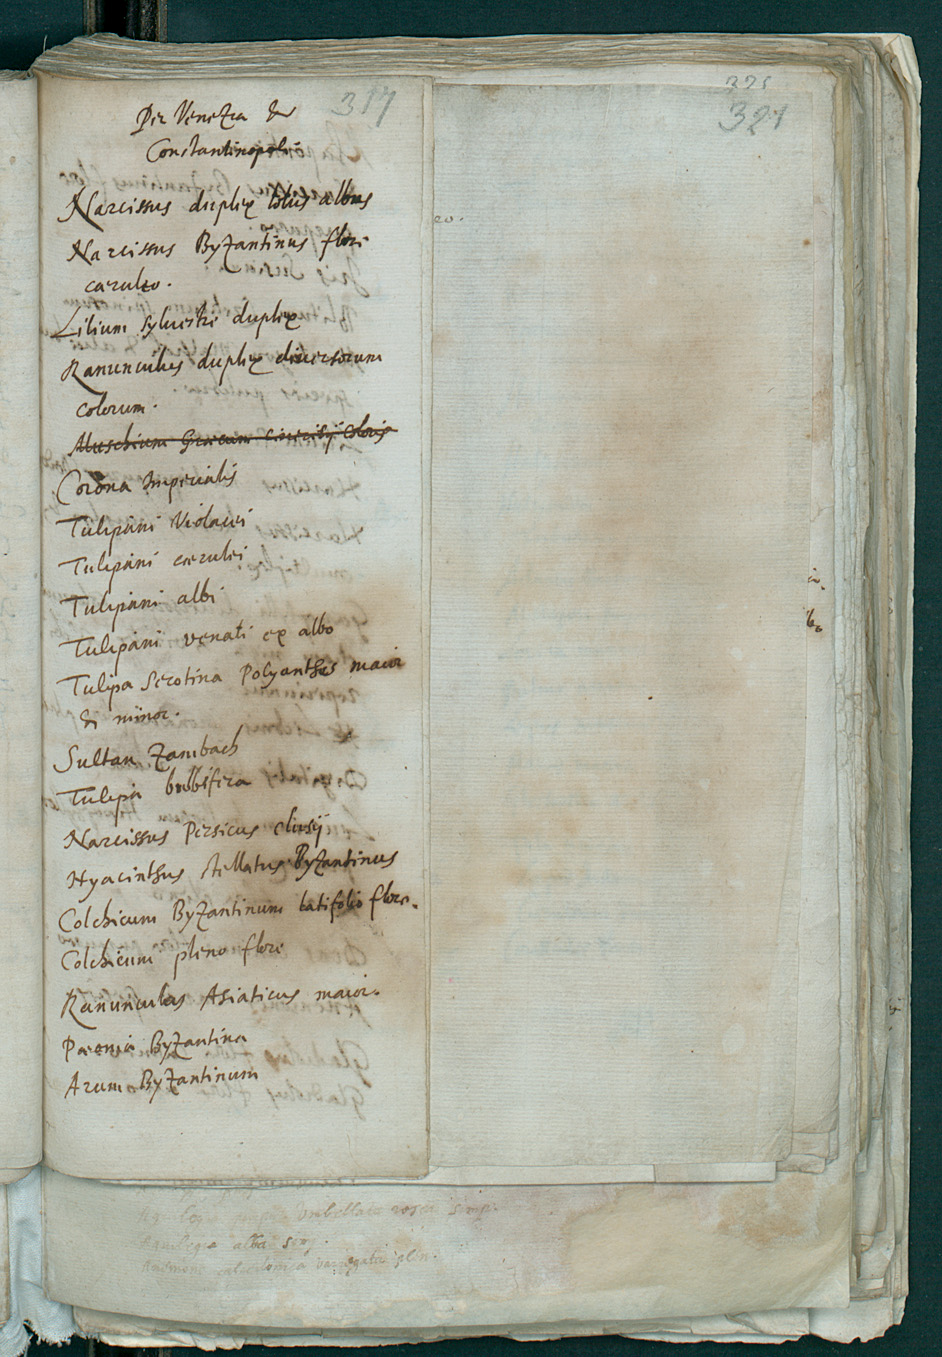 317
325
321
Per Venetia &
Constantinopoli
Narcissus duplex totus albus
Narcissus Byzantinus flore
cæruleo.
Lilium sylvestre duplex
Ranunculus duplex diversorum
colorum.
Muschium Græcum cineritij coloris
Corona Imperialis
Tulipani violacei
Tulipani cærulei
Tulipani albi
Tulipani venati ex albo
Tulipa serotina Polyanthes maior
& minor.
Sultan Zambach
Tulipa bulbifera
Narcissus Persicus clusij
Hyacinthus stellatus Byzantinus
Colchicum Byzantinum latifolio flore.
Colchicum pleno flore
Ranunculus Asiaticus maior.
Pæonia Byzantina
Arum Byzantinum
umbellata rosea simp.
alba simp.
Anemone calcedonica variegata plen.